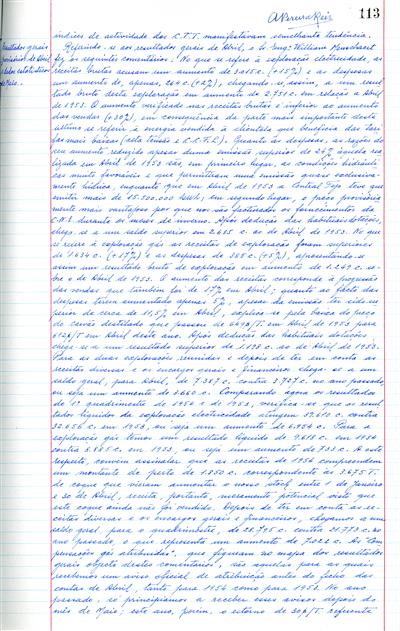 113
índices de actividade dos C.T.T. manifestaram semelhante tendência.
Referindo-se aos resultados gerais de Abril, o Sr. Engº William
fez os seguintes comentários: No que se refere à exploração electricidade, as
receitas brutas acusam um aumento de (+15%) e as despesas
um aumento de, apenas, 264 c. (+2%), chegando-se assim, a um resul-
tado bruto desta exploração em aumento de 2.751 c. em relação a Abril
de 1953. O aumento verificado nas receitas brutas é inferior ao aumento
das vendas (+30%), em consequência da parte mais importante deste
último se referir à energia vendida à clientela que beneficia das tari-
fas mais baixas
seu aumento reduzido apesar duma emissão superior de 28% àquela rea-
lizada em Abril de 1953 são em primeiro lugar, as condições hidráuli-
cas muito favoráveis e que permitiram uma emissão quase exclusiva-
mente hídrica, enquanto que em Abril de 1953 a Central Tejo teve que
emitir mais de 15.500.000 kwh; em segundo lugar, o preço provisòria-
mente mais vantajoso por que nos são facturados os fornecimentos da
C.N.E. durante os meses de inverno. Após dedução das habituais dotações,
chega-se a um saldo superior em 2.685 c. ao de Abril de 1953. No que
se refere à exploração gás as receitas de exploração foram superiores
de 1.634 c. (+17%) e as despesas de 385 c. (+5%), apresentando-se
assim um resultado bruto de exploração em aumento de 1.249 c. so-
bre o de Abril de 1953. O aumento das receitas corresponde à progressão
das vendas que também foi de 17% em Abril; quanto ao facto das
despesas terem aumentado apenas 5%, apesar da emissão ter sido su-
perior de cerca de 11,5% em Abril, explica-se pela baixa do preço
de carvão destilado que passou de em Abril de 1953 para
em Abril deste ano. Após dedução das habituais dotações
chega-se a um resultado superior de ao de Abril de 1953.
Para as duas explorações reunidas e depois de ter em conta as
receitas diversas e os encargos gerais e financeiros chega-se a um
saldo geral, para Abril, de 7.387 c. contra 3.727 c. no ano passado,
ou seja um aumento de 3.660 c. Comparando agora os resultados
do 1º quadrimestre de 1954 e de 1953, verifica-se que os resul-
tados líquidos da exploração electricidade atingem 39.610 c. contra
32.656 c. em 1953, ou seja um aumento de 6.954 c. Para a
exploração gás temos um resultado líquido de 9.618 c. em 1954
contra 8.885 c. em 1953, ou seja um aumento de 733 c. A este
respeito, convém assinalar que as receitas de 1954 compreendem
um montante de perto de 1.250 c. correspondente às 3.675 T.
de coque que vieram aumentar o nosso stock entre 1 de Janeiro
e 30 de Abril, receita, portanto, meramente potencial visto que
este coque ainda não foi vendido. Depois de ter em conta as re-
ceitas diversas e os encargos gerais e financeiros, chegamos a um
saldo geral, para o quadrimestre, de contra no
ano passado, o que representa um aumento de 7.022 c. As "Com-
pensações gás atribuídas", que figuram no mapa dos resultados
gerais objecto destes comentários, são aquelas para as quais
recebemos um aviso oficial de atribuição antes do fecho das
contas de Abril, tanto para 1954 como para 1953. No ano
passado, só principiámos a receber esses avisos depois do
mês de Maio; este ano, porém, o estorno de 30$/T. referente